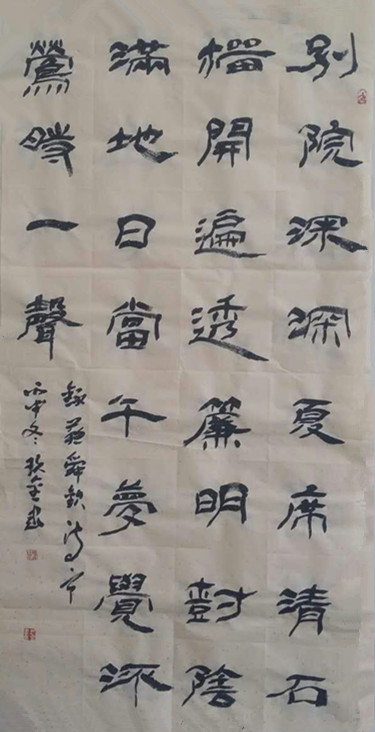 別院深深夏席清石
榴開遍透簾明樹陰
滿地日當午夢覺流
鶯時一聲
錄蘇舜欽詩
丙申冬書